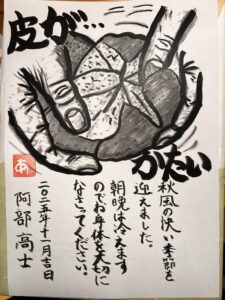 皮が…
かたい
秋風の快い季節を
迎えました。
朝晩は冷えます
のでお身体を大切に
なさってください。
二〇二五年十一月吉日
阿部高士
あ